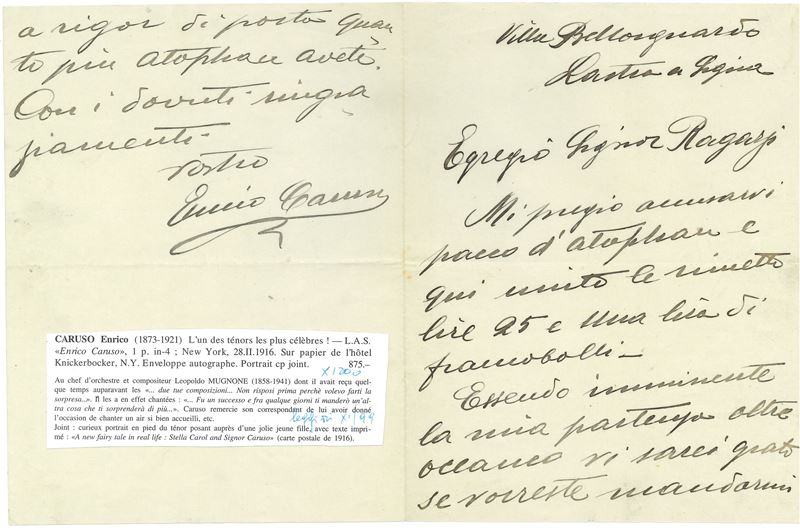 Villa Bellosguardo
Lastra a Signa
Egregio Signor Ragazzi
Mi pregio accusarvi
pacco d'Atophan e
qui unito le rimetto
lire 25 e una lira di
francobolli –
Essendo imminente
la mia partenza oltre
oceano vi sarei grato
se vorreste mandarmi
a rigor di posta quan
to più Atophan avete.
Con i dovuti ringra
ziamenti.
Vostro
Enrico Caruso
CARUSO Enrico (1873-1921) L'un des ténors les plus célèbres ! — L.A.S.
«Enrico Caruso», 1 p. in-4 ; New York, 28.II.1916. Sur papier de l'hôtel
Knickerbocker, N.Y. Enveloppe autographe. Portrait cp joint. 875.–
x1200
Au chef d'orchestre et compositeur Leopoldo MUGNONE (1858-1941) dont il avait reçu quel-
que temps auparavant les «... due tue composizioni... Non risposi prima perchè volevo farti la
sorpresa...». Il les a en effet chantées : «... Fu un successo e fra qualche giorni ti manderò un'al-
tra cosa che ti sorprenderà di più...». Caruso remercie son correspondant de lui avoir donné
l'occasion de chanter un air si bien accueilli, etc.
Joint : curieux portrait en pied du ténor posant auprès d'une jolie jeune fille, avec texte impri-
mé : «A new fairy tale in real life : Stella Carol and Signor Caruso» (carte postale de 1916).